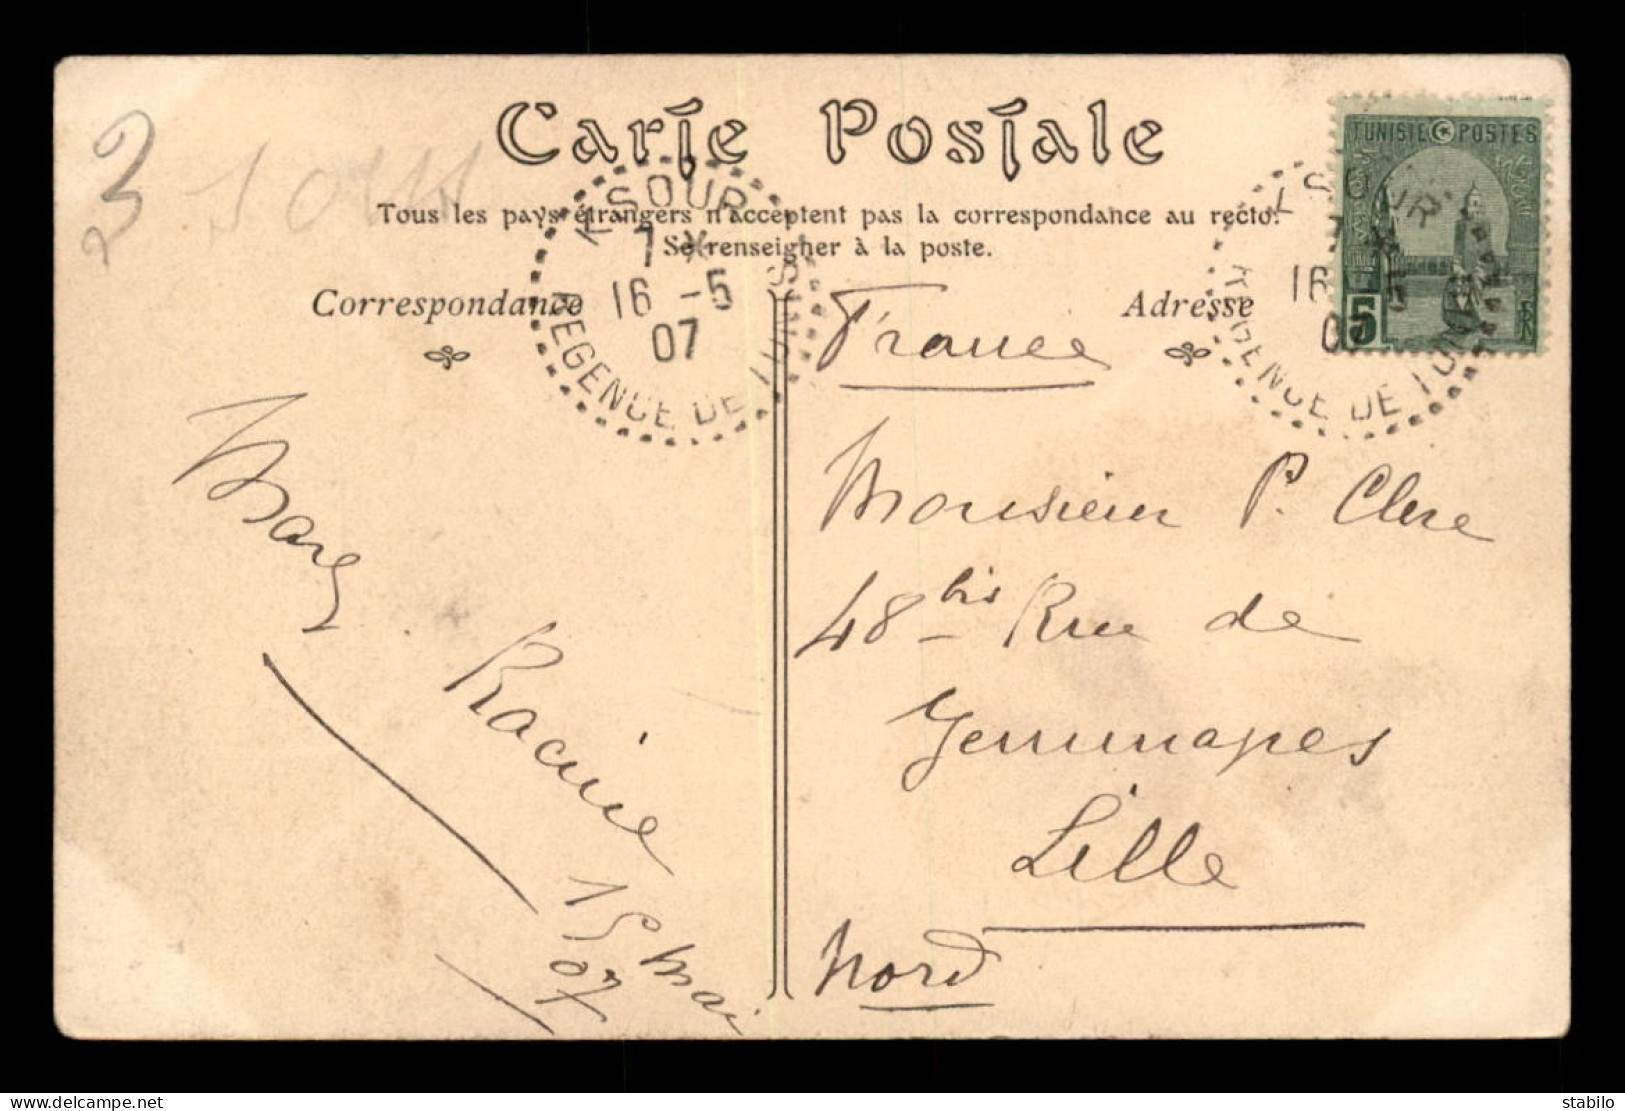 Carte Postale
Tous les pays étrangers n'acceptent pas la correspondance au recto.
Se renseigner à la poste.
Correspondance
Adresse
TUNISIE POSTES
5
KSOUR
7 *
16 -5
07
REGENCE DE TUNIS
KSOUR
16
REGENCE DE TUNIS
3
France
Monsieur P. Clere
48 bis Rue de
Jemmapes
Lille
Nord
Racine
15 mai
07
delcampe.net
stabilo